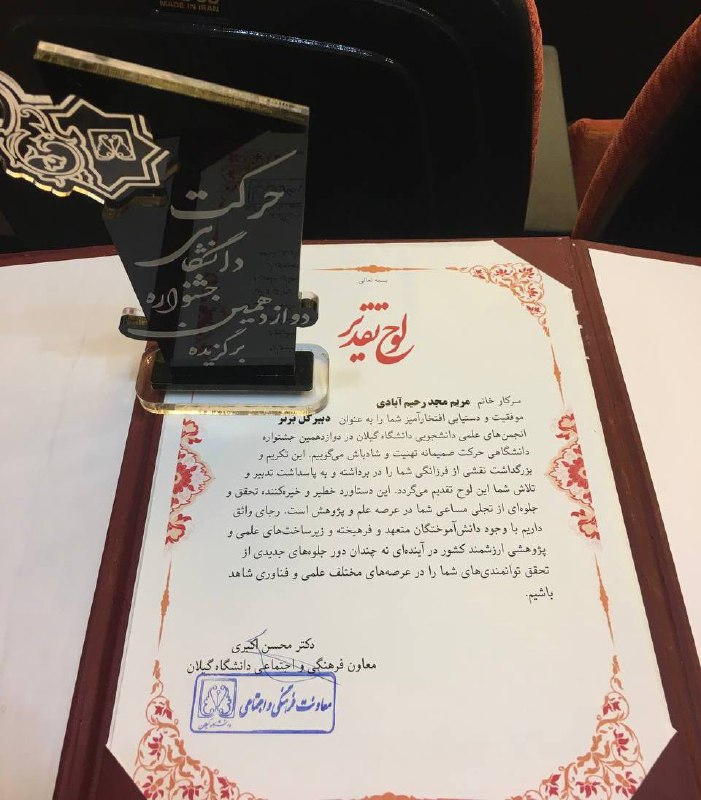 MADE IN IRAN
حرکت
دانشگاهی
جشنواره
دوازدهمین
برگزیده
بسمه تعالی
لوح تقدیر
سرکار خانم مریم مجد رحیم آبادی
موفقیت و دستیابی افتخارآمیز شما را به عنوان دبیر کل برتر
انجمن‌های علمی دانشجویی دانشگاه گیلان در دوازدهمین جشنواره
دانشگاهی حرکت صمیمانه تهنیت و شادباش می‌گوییم. این تکریم و
بزرگداشت نقشی از فرزانگی شما را در برداشته و به پاسداشت تدبیر و
تلاش شما این لوح تقدیم می‌گردد. این دستاورد خطیر و خیره‌کننده، تحقق و
جلوه‌ای از تجلی مساعی شما در عرصه علم و پژوهش است. رجای واثق
داریم با وجود دانش‌آموختگان متعهد و فرهیخته و زیرساخت‌های علمی و
پژوهشی ارزشمند کشور در آینده‌ای نه چندان دور جلوه‌های جدیدی از
تحقق توانمندی‌های شما را در عرصه‌های مختلف علمی و فناوری شاهد
باشیم.
دکتر محسن اکبری
معاون فرهنگی و اجتماعی دانشگاه گیلان
معاونت فرهنگی و اجتماعی
دانشگاه گیلان